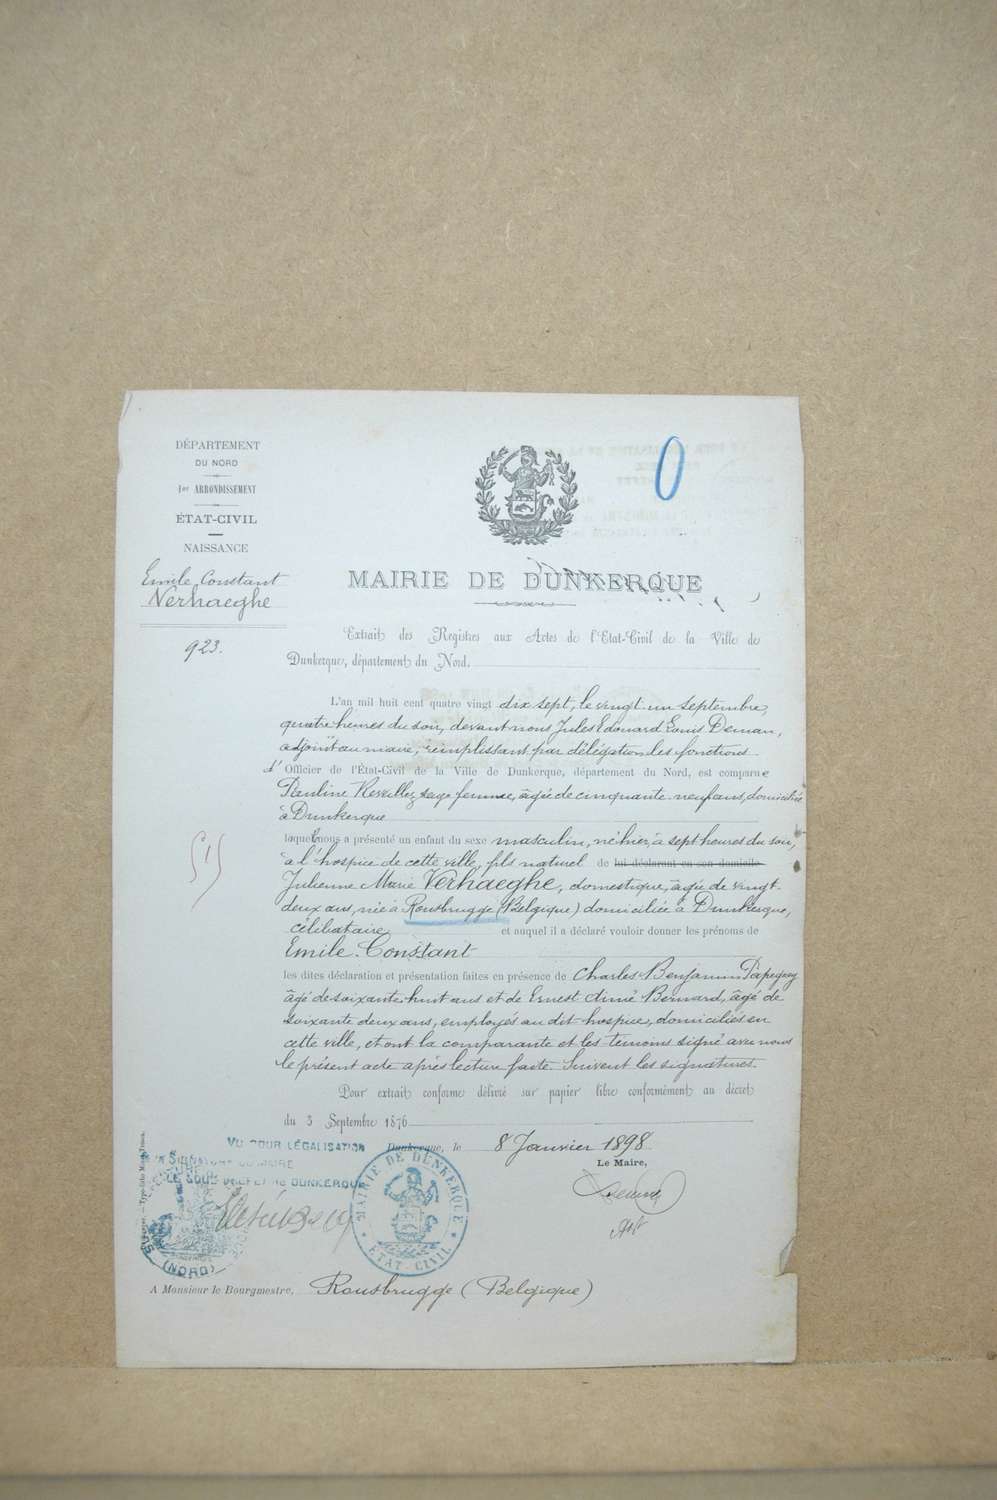 DÉPARTEMENT
DU NORD
1er ARRONDISSEMENT
ÉTAT-CIVIL
NAISSANCE
Emile Constant
Verhaeghe
923.
0
MAIRIE DE DUNKERQUE
Extrait des Registres aux Actes de l'Etat-Civil de la Ville de
Dunkerque, département du Nord.
L'an mil huit cent quatre vingt dix sept, le vingt un septembre,
quatre heures du soir, devant nous Jules Edouard Louis Deman,
adjoint au maire, remplissant par délégation les fonctions
d'Officier de l'État-Civil de la Ville de Dunkerque, département du Nord, est comparue
Pauline sage femme, âgée de cinquante-neuf ans, domiciliée
à Dunkerque
laquelle nous a présenté un enfant du sexe masculin, né hier, à sept heures du soir,
à l'hospice de cette ville, fils naturel de lui déclarant en son domicile
Julienne Marie Verhaeghe, domestique, âgée de vingt-
deux ans, née à Rousbrugge (Belgique) domiciliée à Dunkerque,
célibataire et auquel il a déclaré vouloir donner les prénoms de
Emile Constant
les dites déclaration et présentation faites en présence de Charles Benjamin
âgé de soixante-huit ans et de Ernest Aimé Bernard, âgé de
soixante deux ans, employés au dit hospice, domiciliés en
cette ville, et ont la comparante et les témoins signé avec nous
le présent acte après lecture faite. Suivent les signatures.
Pour extrait conforme délivré sur papier libre conformément au décret
du 3 Septembre 1876
Dunkerque, le 8 Janvier 1898
Le Maire,
VU POUR LÉGALISATION
LA SIGNATURE DU MAIRE
LE SOUS-PRÉFET de DUNKERQUE
(NORD)
MAIRIE DE DUNKERQUE
ETAT-CIVIL
A Monsieur le Bourgmestre, Rousbrugge (Belgique)